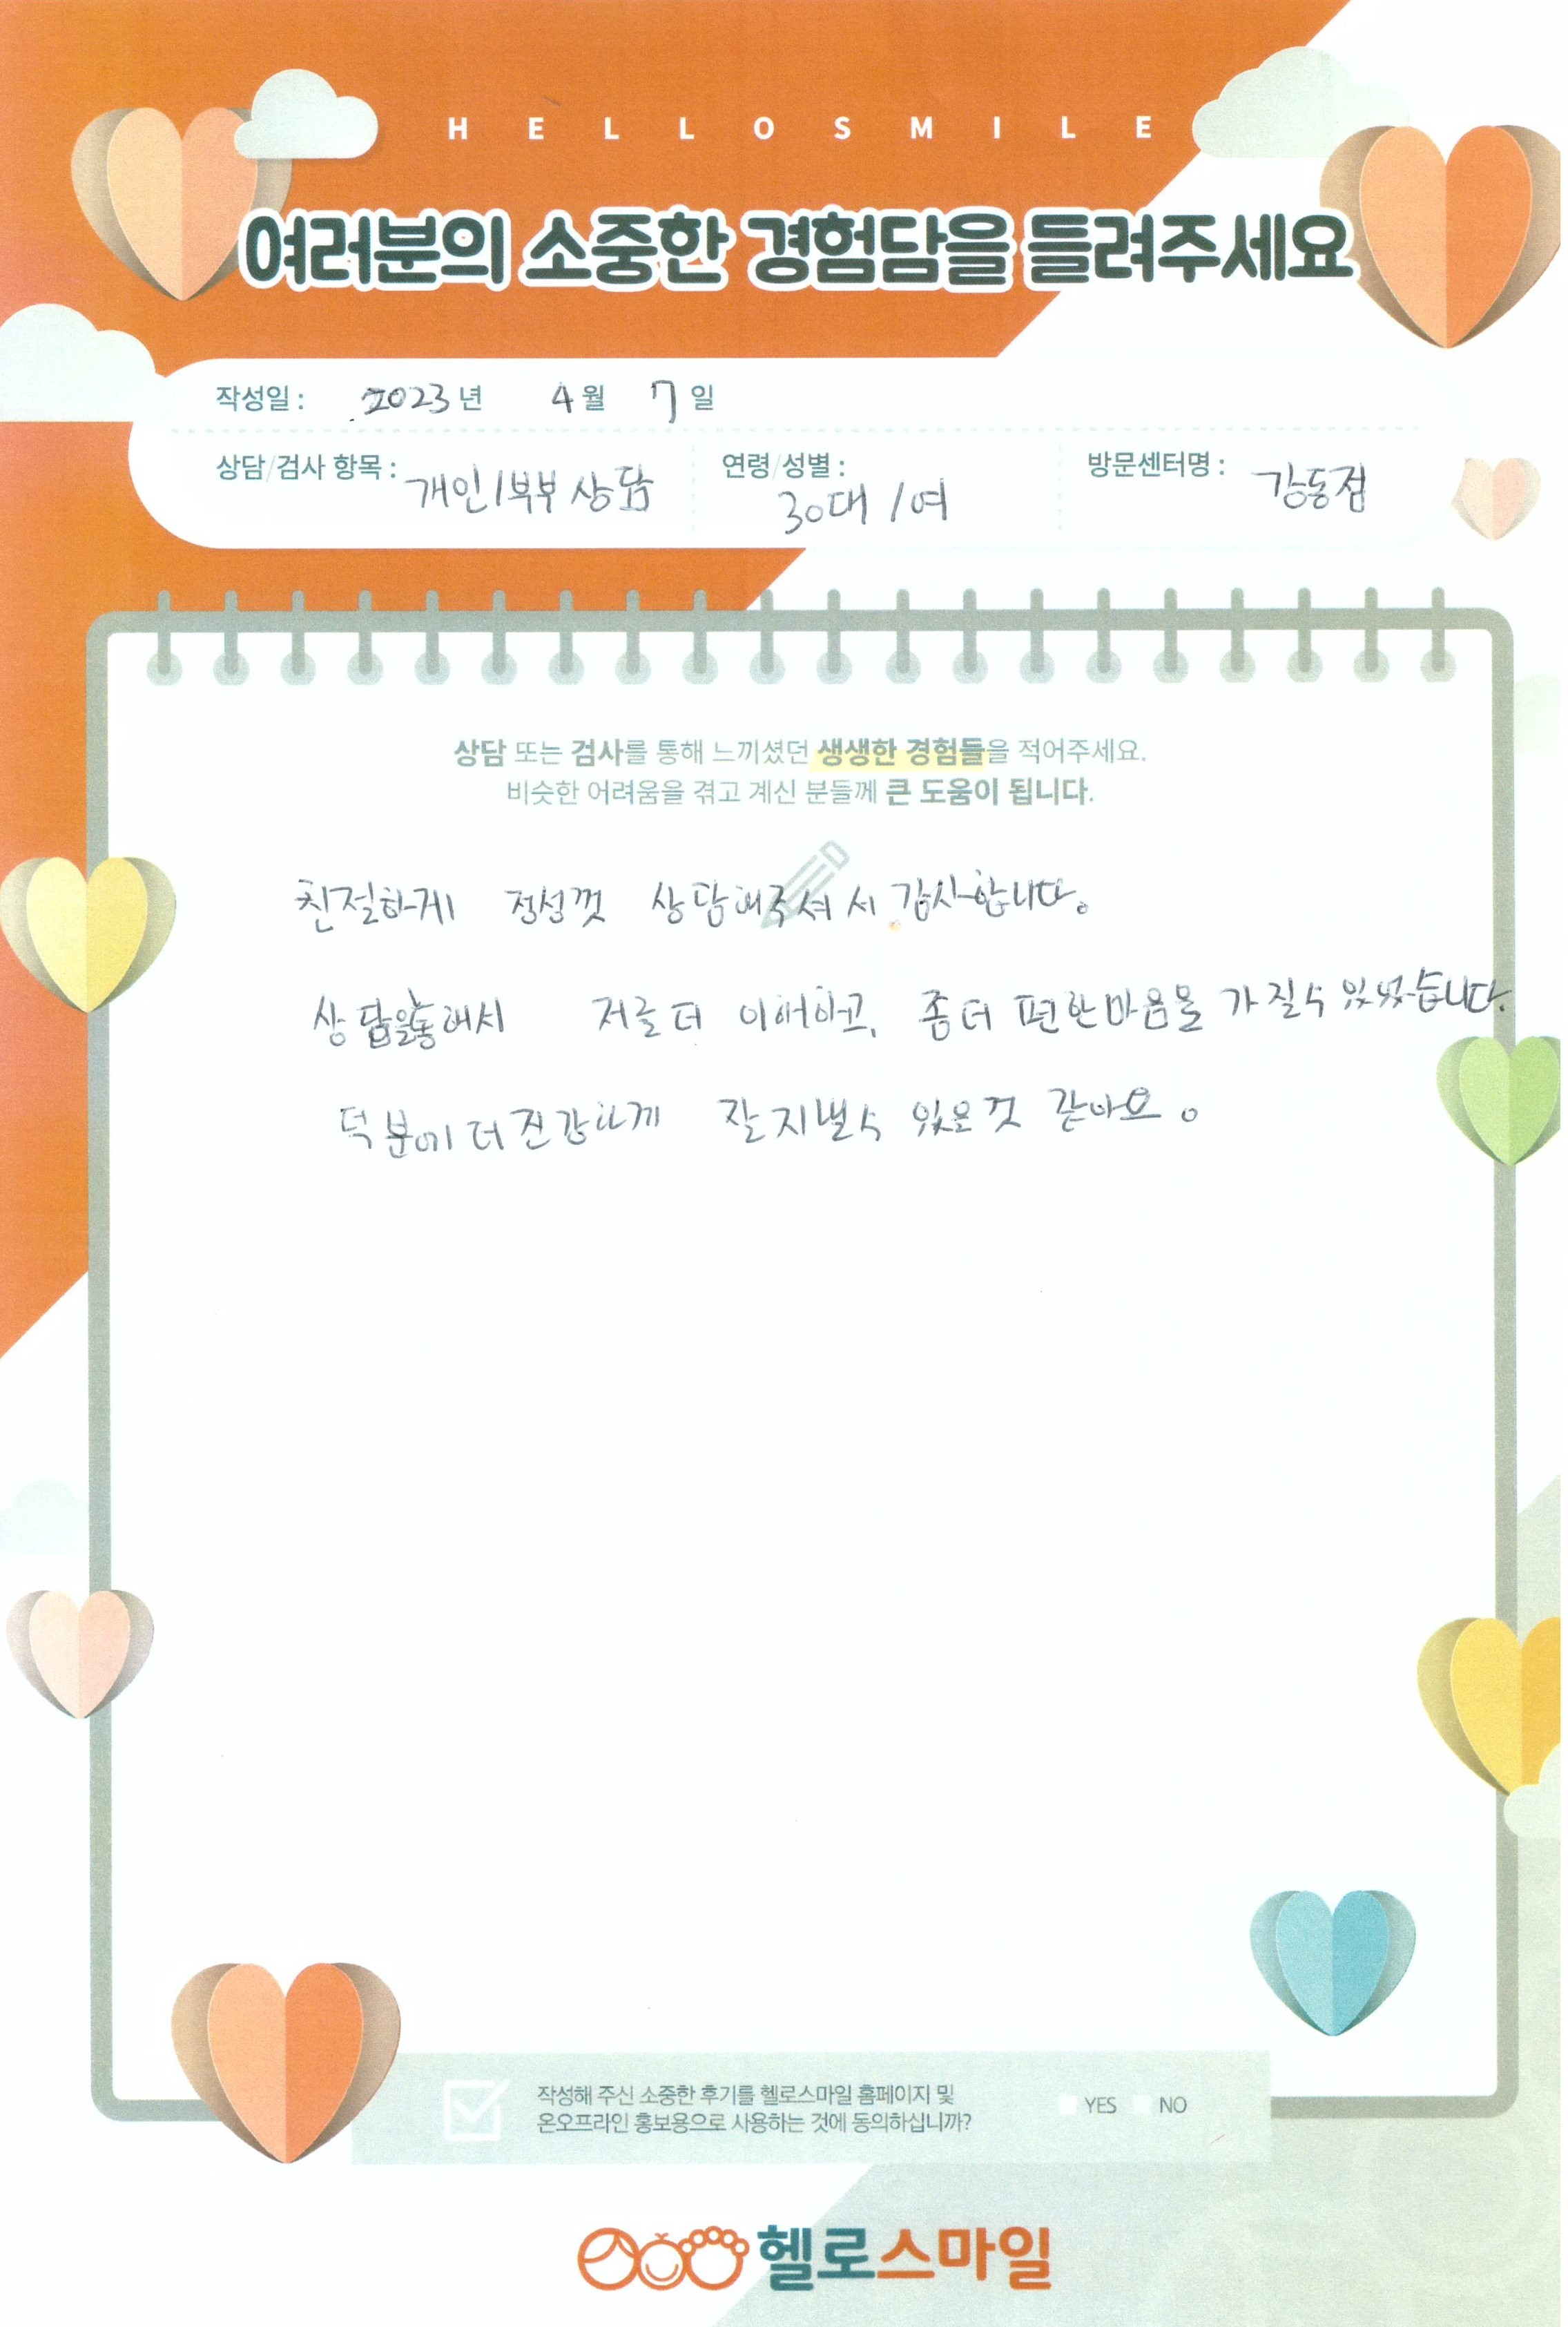 HELLOSMILE
여러분의 소중한 경험담을 들려주세요
작성일 : 2023년 4월 7일
상담/검사 항목 : 개인/부부 상담
연령/성별 : 30대 / 여
방문센터명 : 강동점
상담 또는 검사를 통해 느끼셨던 생생한 경험들을 적어주세요.
비슷한 어려움을 겪고 계신 분들께 큰 도움이 됩니다.
친절하게 정성껏 상담해주셔서 감사합니다.
상담을통해서 저를 더 이해하고, 좀 더 편한마음을 가질수 있었습니다.
덕분에 더 건강하게 잘 지낼수 있을것 같아요.
작성해 주신 소중한 후기를 헬로스마일 홈페이지 및
온오프라인 홍보용으로 사용하는 것에 동의하십니까?
YES NO
헬로스마일